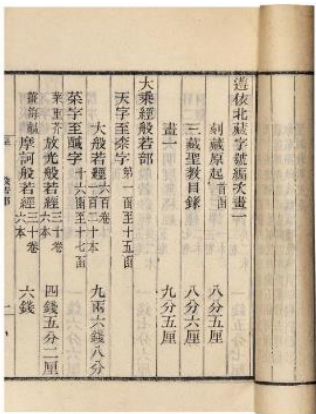 遵依北藏字號編次畫一
刻藏原起首函 八分五厘
三藏聖教目錄 八分六厘
畫一 九分五厘
大乘經般若部
天字至柰字第一函至十五函
大般若經六百卷一百二十本 九兩六錢八分
菜字至醎字十六函至十七函
菜重芥 放光般若經三十卷六本 四錢五分二厘
薑海醎 摩訶般若經三十卷六本 六錢
般若部